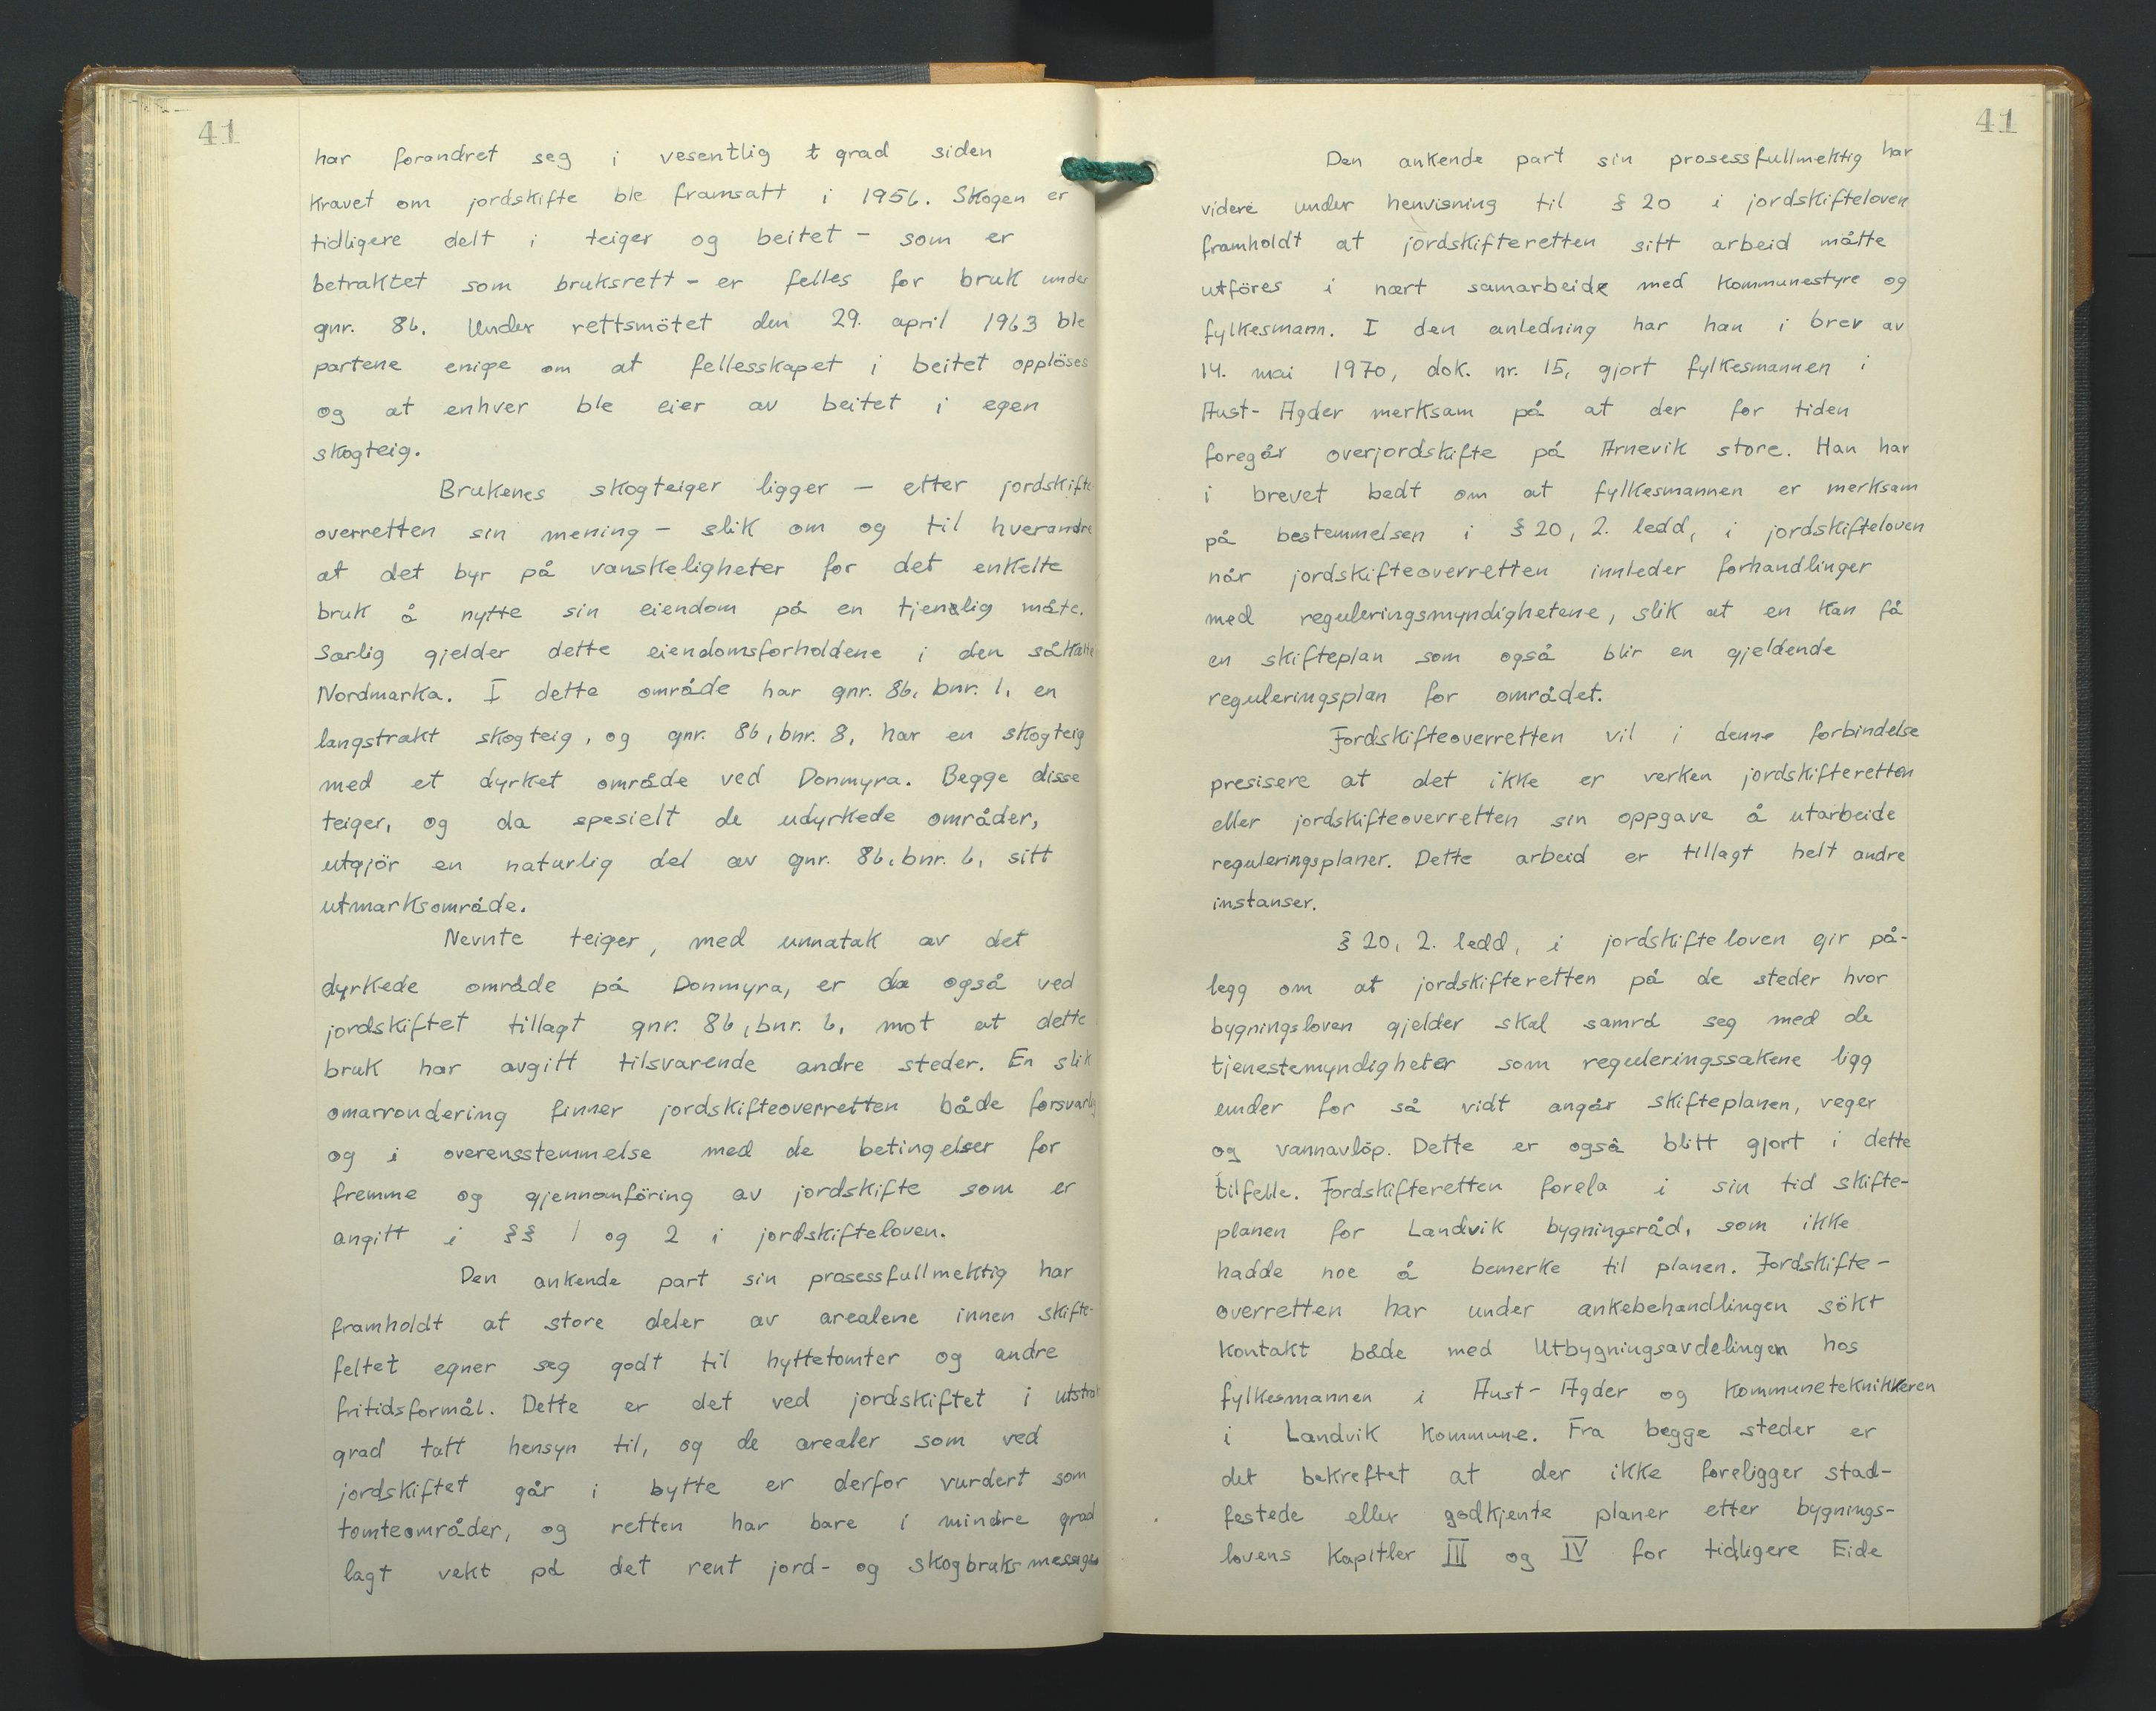 41
har forandret seg i vesentlig t grad siden
kravet om jordskifte ble framsatt i 1956. Skogen er
tidligere delt i teiger og beitet - som er
betraktet som bruksrett - er felles for bruk under
gnr. 86. Under rettsmötet den 29. april 1963 ble
partene enige om at fellesskapet i beitet opplöses
og at enhver ble eier av beitet i egen
skogteig.
Brukenes skogteiger ligger - etter jordskifte-
overretten sin mening - slik om og til hverandre
at det byr på vanskeligheter for det enkelte
bruk å nytte sin eiendom på en tjenelig måte.
Særlig gjelder dette eiendomsforholdene i den såkalte
Nordmarka. I dette område har gnr. 86, bnr. 1, en
langstrakt skogteig, og gnr. 86, bnr. 8, har en skogteig
med et dyrket område ved Donmyra. Begge disse
teiger, og da spesielt de udyrkede områder,
utgjör en naturlig del av gnr. 86, bnr. 6, sitt
utmarksområde.
Nevnte teiger, med unnatak av det
dyrkede område på Donmyra, er da også ved
jordskiftet tillagt gnr. 86, bnr. 6, mot at dette
bruk har avgitt tilsvarende andre steder. En slik
omarrondering finner jordskifteoverretten både forsvarlig
og i overensstemmelse med de betingelser for
fremme og gjennomföring av jordskifte som er
angitt i §§ 1 og 2 i jordskifteloven.
Den ankende part sin prosessfullmektig har
framholdt at store deler av arealene innen skifte-
feltet egner seg godt til hyttetomter og andre
fritidsformål. Dette er det ved jordskiftet i utstrakt
grad tatt hensyn til, og de arealer som ved
jordskiftet går i bytte er derfor vurdert som
tomteområder, og retten har bare i mindre grad
lagt vekt på det rent jord- og skogbruksmessige
41
Den ankende part sin prosessfullmektig har
videre under henvisning til § 20 i jordskifteloven
framholdt at jordskifteretten sitt arbeid måtte
utföres i nært samarbeide med kommunestyre og
fylkesmann. I den anledning har han i brev av
14. mai 1970, dok. nr. 15, gjort fylkesmannen i
Aust-Agder merksam på at der for tiden
foregår overjordskifte på Arnevik store. Han har
i brevet bedt om at fylkesmannen er merksam
på bestemmelsen i § 20, 2. ledd, i jordskifteloven
når jordskifteoverretten innleder forhandlinger
med reguleringsmyndighetene, slik at en kan få
en skifteplan som også blir en gjeldende
reguleringsplan for området.
Jordskifteoverretten vil i denne forbindelse
presisere at det ikke er verken jordskifteretten
eller jordskifteoverretten sin oppgave å utarbeide
reguleringsplaner. Dette arbeid er tillagt helt andre
instanser.
§ 20, 2. ledd, i jordskifteloven gir på-
legg om at jordskifteretten på de steder hvor
bygningsloven gjelder skal samrå seg med de
tjenestemyndigheter som reguleringssakene ligg
under for så vidt angår skifteplanen, veger
og vannavlöp. Dette er også blitt gjort i dette
tilfelle. Jordskifteretten forela i sin tid skifte-
planen for Landvik bygningsråd, som ikke
hadde noe å bemerke til planen. Jordskifte-
overretten har under ankebehandlingen sökt
kontakt både med Utbygningsavdelingen hos
fylkesmannen i Aust-Agder og kommuneteknikkeren
i Landvik kommune. Fra begge steder er
det bekreftet at der ikke foreligger stad-
festede eller godkjente planer etter bygnings-
lovens kapitler III og IV for tidligere Eide